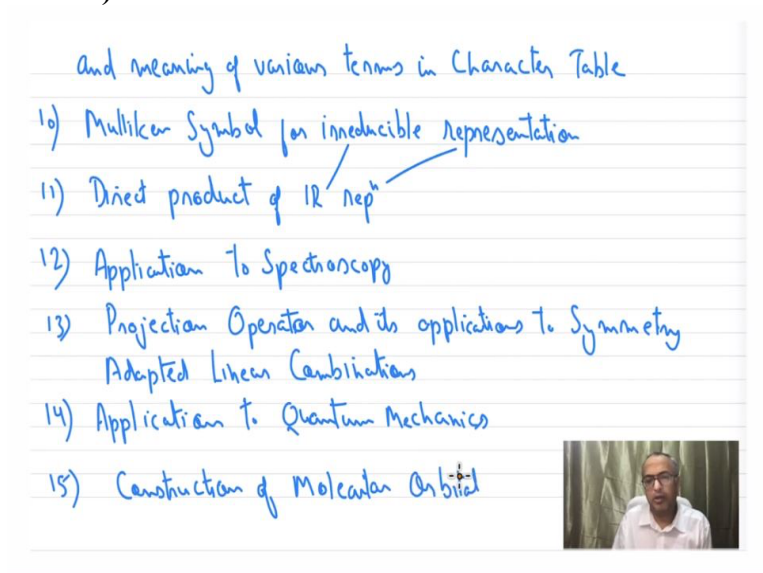 and meaning of various terms in Character Table
10) Mulliken Symbol for irreducible representation
11) Direct product of IR repⁿ
12) Application to Spectroscopy
13) Projection Operator and its applications to Symmetry
Adapted Linear Combinations
14) Application to Quantum Mechanics
15) Construction of Molecular Orbital